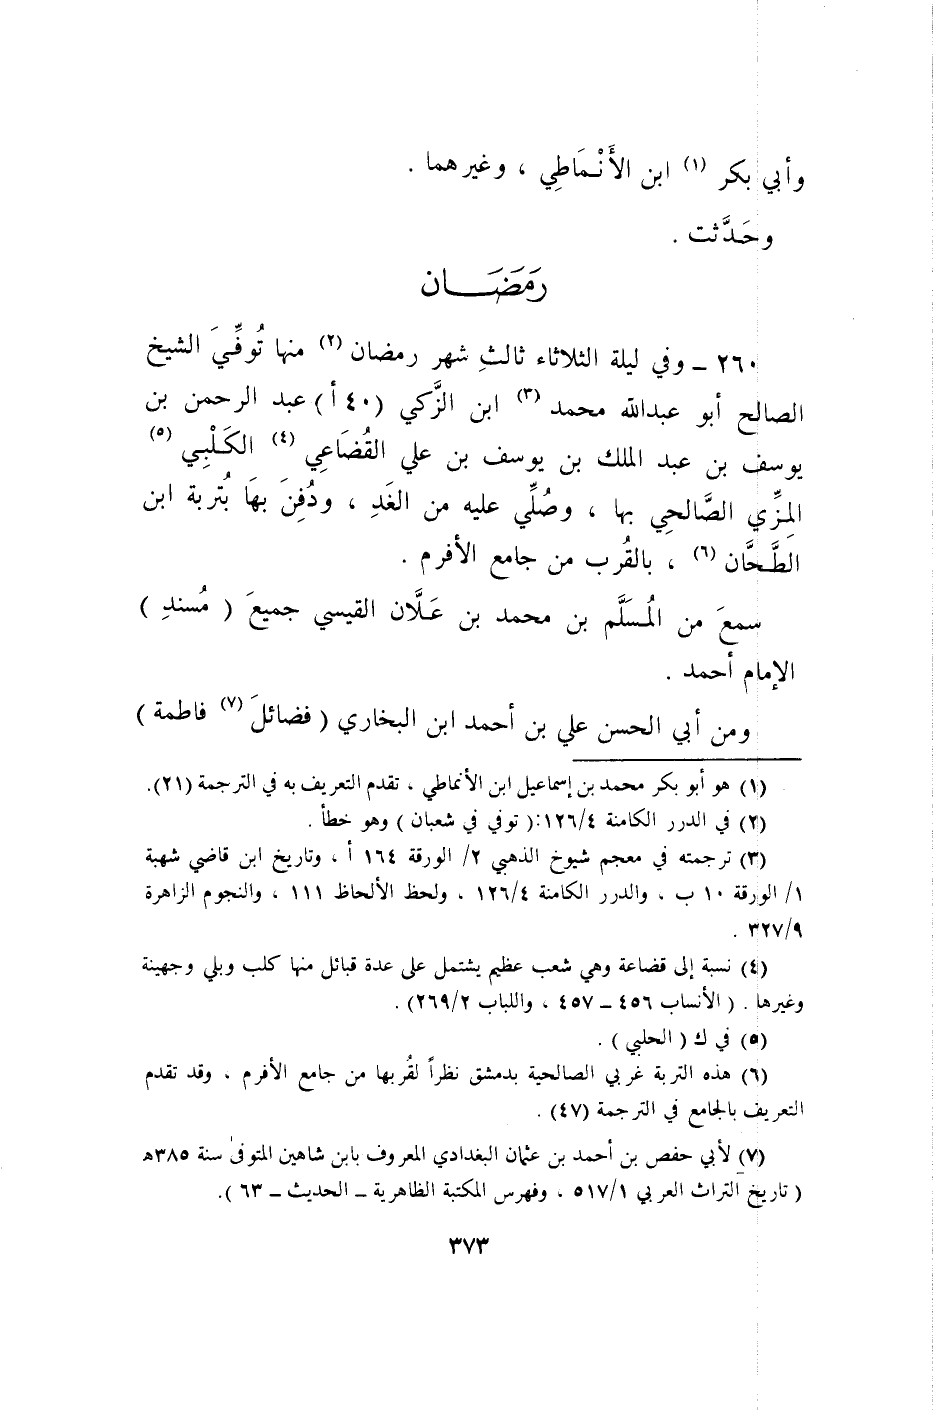 وأبي بكر (١) ابن الأَنْمَاطِي ، وغيرهما .
وحَدَّثت .
رَمَضَان
٢٦٠ ـ وفي ليلة الثلاثاء ثالثِ شهر رمضان (٢) منها تُوفِّيَ الشيخ
الصالح أبو عبدالله محمد (٣) ابن الزَّكي (٤٠ أ) عبد الرحمن بن
يوسف بن عبد الملك بن يوسف بن علي القُضَاعِي (٤) الكَلْبِي (٥)
المِزِّي الصَّالحِي بها ، وصُلِّي عليه من الغَدِ ، ودُفِنَ بهَا بُتربة ابن
الطَّحَّان (٦) ، بالقُرب من جامع الأفرم .
سمعَ من المُسَلَّم بن محمد بن عَلَّان القيسي جميعَ ( مُسندِ )
الإمام أحمد .
ومن أبي الحسن علي بن أحمد ابن البخاري ( فضائلَ (٧) فاطمة )
(١) هو أبو بكر محمد بن إسماعيل ابن الأنماطي ، تقدم التعريف به في الترجمة (٢١).
(٢) في الدرر الكامنة ١٢٦/٤:( توفي في شعبان ) وهو خطأ .
(٣) ترجمته في معجم شيوخ الذهبي ٢/ الورقة ١٦٤ أ ، وتاريخ ابن قاضي شهبة
١/ الورقة ١٠ ب ، والدرر الكامنة ١٢٦/٤ ، ولحظ الألحاظ ١١١ ، والنجوم الزاهرة
٣٢٧/٩ .
(٤) نسبة إلى قضاعة وهي شعب عظيم يشتمل على عدة قبائل منها كلب وبلي وجهينة
وغيرها . ( الأنساب ٤٥٦ ـ ٤٥٧ ، واللباب ٢٦٩/٢) .
(٥) في ك ( الحلبي ) .
(٦) هذه التربة غربي الصالحية بدمشق نظراً لقُربها من جامع الأفرم ، وقد تقدم
التعريف بالجامع في الترجمة (٤٧) .
(٧) لأبي حفص بن أحمد بن عثمان البغدادي المعروف بابن شاهين المتوفى سنة ٣٨٥ه
( تاريخ التراث العربي ٥١٧/١ ، وفهرس المكتبة الظاهرية ـ الحديث ـ ٦٣ ).
٣٧٣